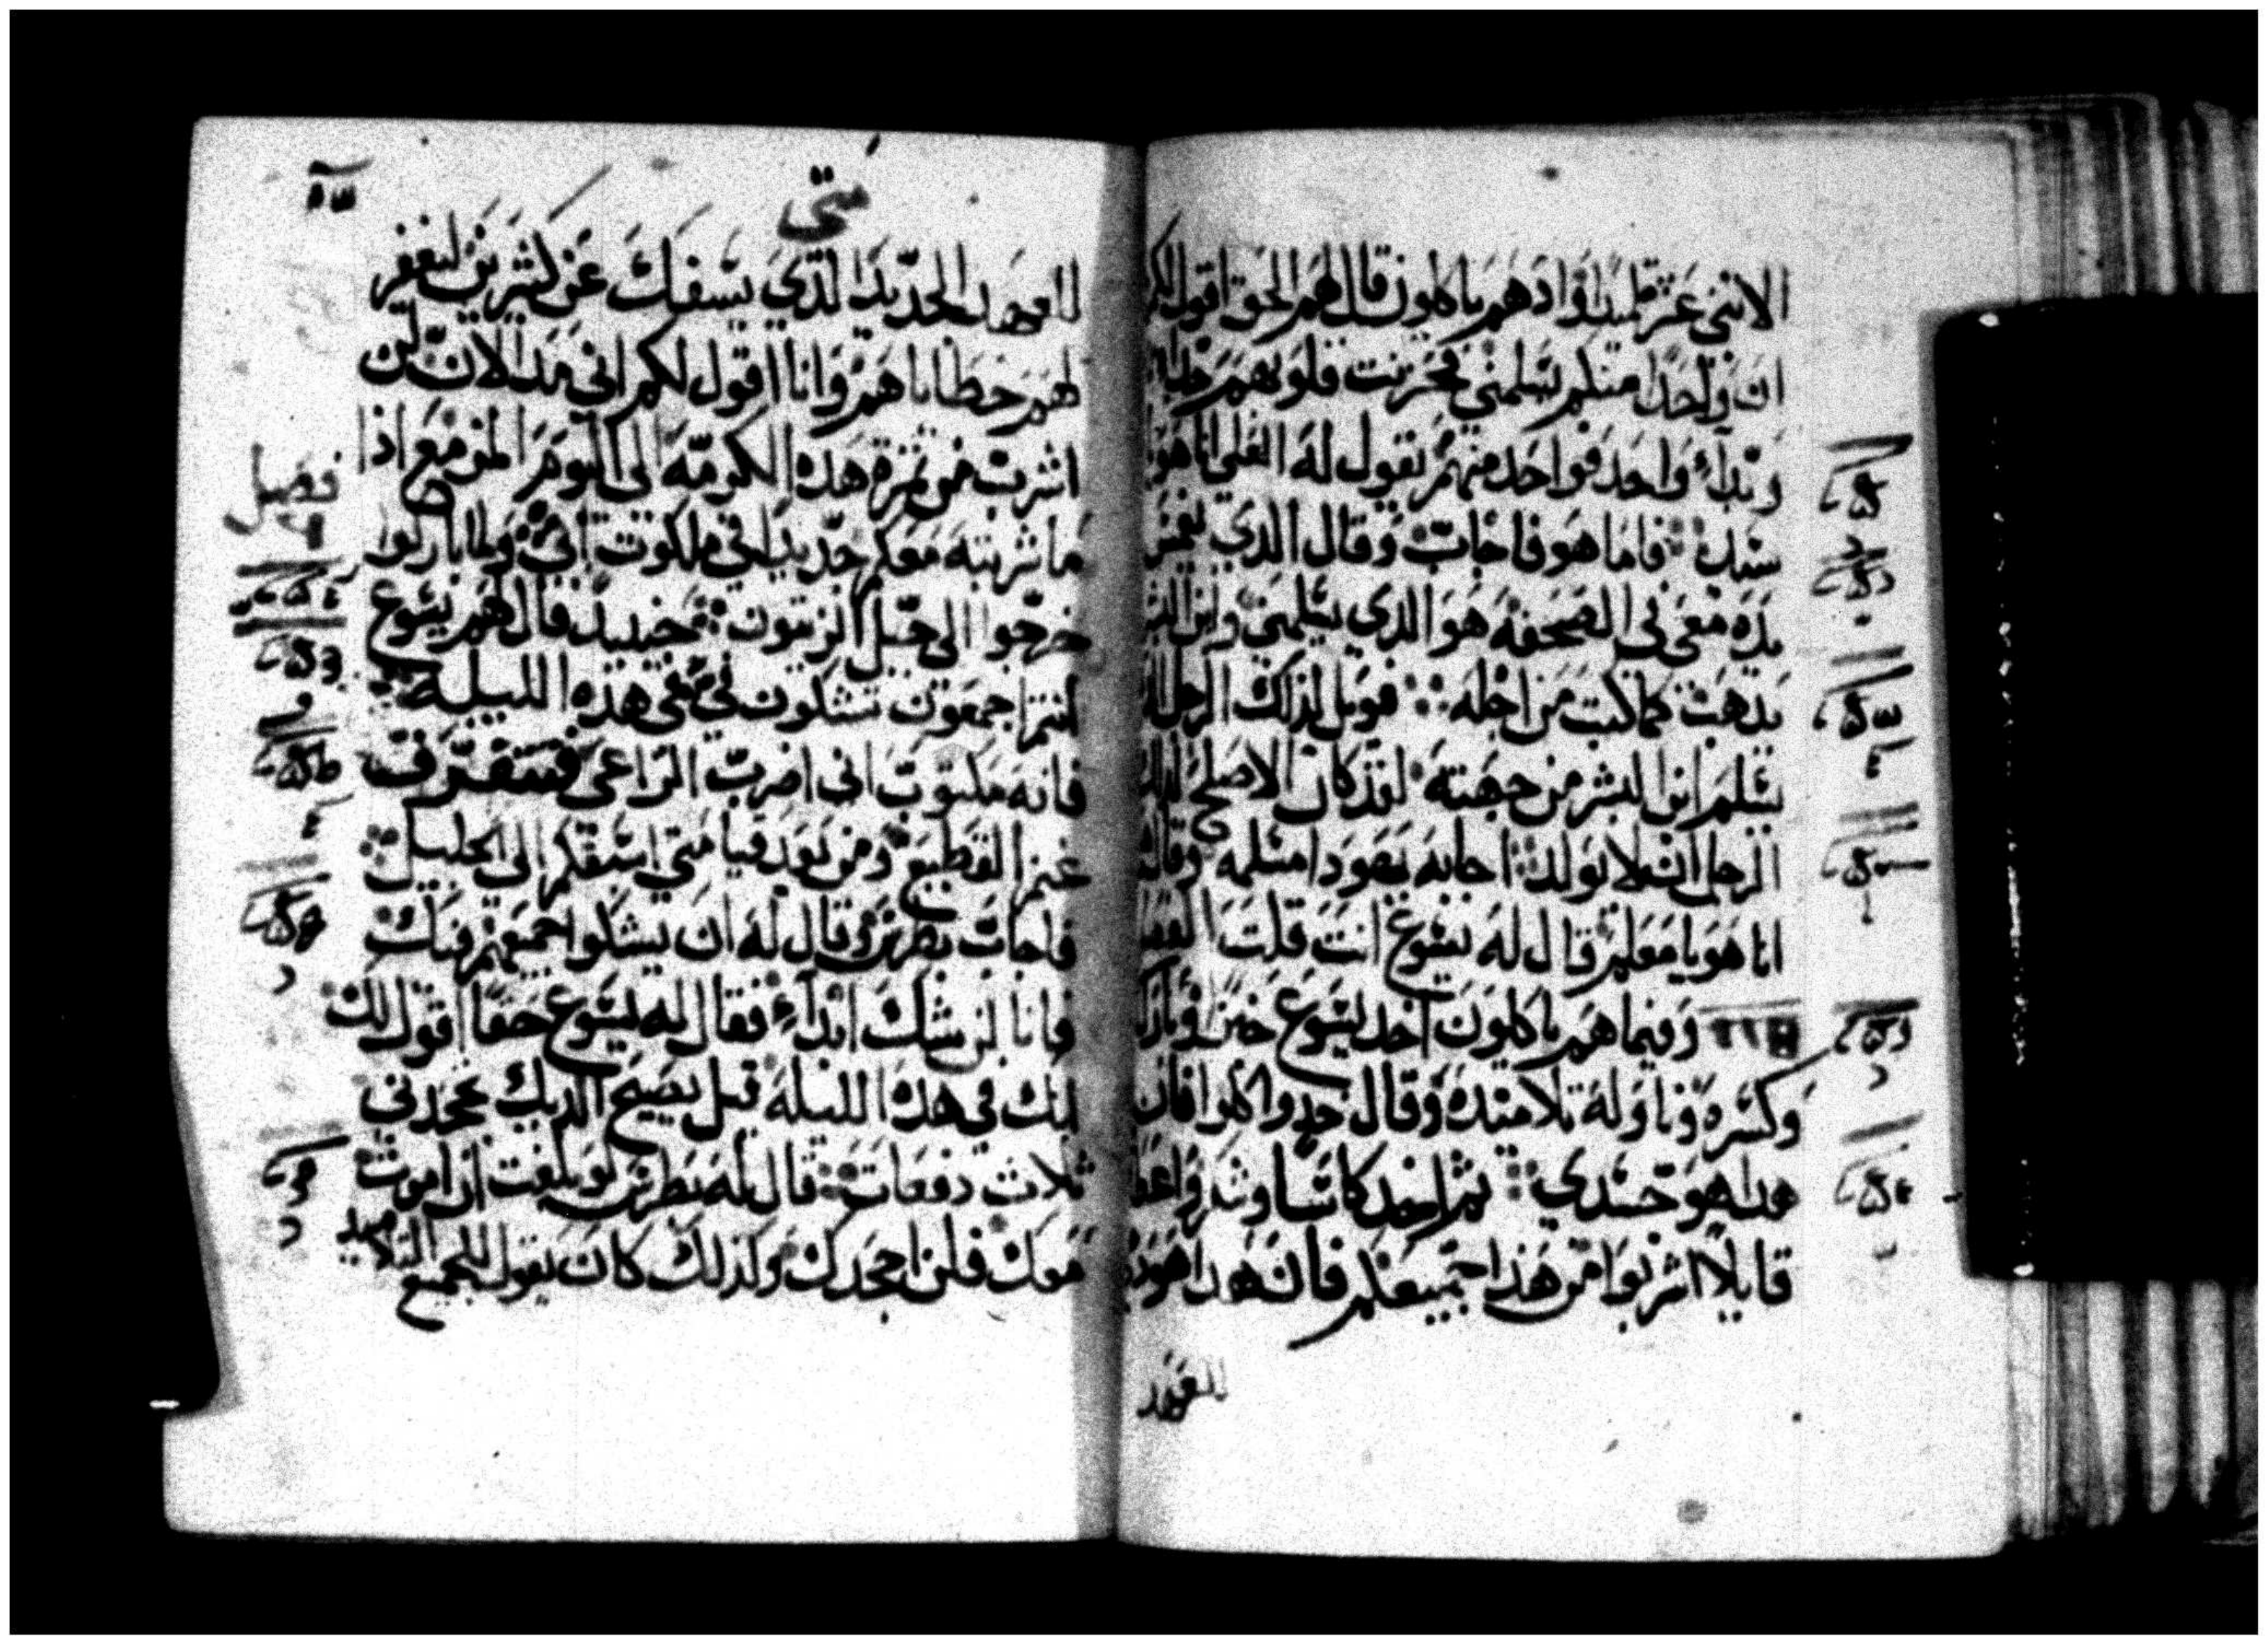 الاثني عشر تلميذا واذ هم ياكلون قال لهم الحق اقول لكم
ان واحدا منكم يسلمني فحزنت قلوبهم جدا
وبداء واحد فواحد منهم يقول له العلي انا هو يا
سيد فاما هو فاجاب وقال الذي يغمس
يده معي في الصحفة هو الذي يسلمني وابن البشر
يذهب كما كتب من اجله فويل لذلك الرجل الذي
يسلم ابن البشر من جهته لقد كان الاصلح لذلك
الرجل ان لا يولد اجابه يهودا مسلمه وقال
انا هو يا معلم قال له يسوع انت قلت
وفيما هم ياكلون اخذ يسوع خبزا وبارك
وكسره وناوله تلاميذه وقال خذوا كلوا فان
هذا هو جسدي ثم اخذ كاسا وشكر واعطا
قايلا اشربوا من هذا جميعكم فان هذا هو دم
للعهد
متى
للعهد الجديد الذي يسفك عن كثيرين ليغفر
لهم خطاياهم وانا اقول لكم اني مذ الان لن
اشرب من ثمرة هذه الكرمة الى اليوم المزمع اذا
ما شربته معكم جديدا في ملكوت ابي ولما باركوا
خرجوا الى جبل الزيتون حينيذ قال لهم يسوع
انتم اجمعون تشكون في في هذه الليلة
فانه مكتوب اني اضرب الراعي فتتفرق
غنم القطيع ومن بعد قيامتي اسبقكم الى الجليل
فاجاب بطرس وقال له ان يشكوا جميعهم فيك
فانا لن اشك ابداء فقال له يسوع حقا اقول لك
انك في هذه الليلة قبل يصيح الديك تجحدني
ثلاث دفعات قال له بطرس لو بلغت ان اموت
معك فلن اجحدك وكذلك كان يقول جميع التلاميد
فصل